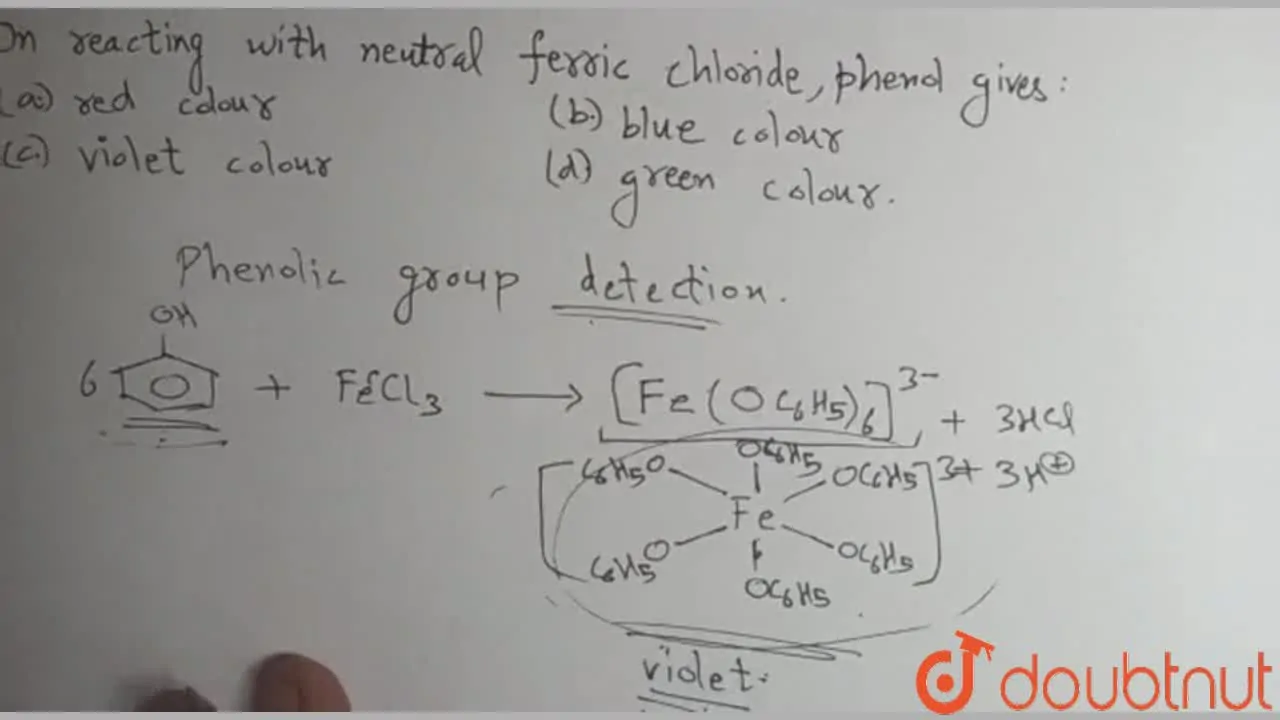 On reacting with neutral ferric chloride, phenol gives:
(a.) red colour (b.) blue colour
(c.) violet colour (d) green colour.
Phenolic group detection.
OH
6 + FeCl3 → [Fe(OC6H5)6]3- + 3HCl
[C6H5O OC6H5 OC6H5]3- + 3H+
Fe
C6H5O OC6H5 OC6H5
violet.
doubtnut